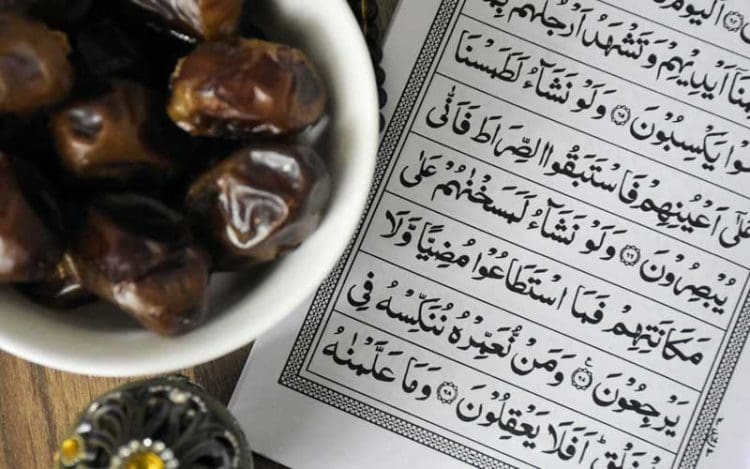 اَلْيَوْمَ
اَيْدِيْهِمْ وَتَشْهَدُ اَرْجُلُهُمْ
يَكْسِبُوْنَ ۝٦٥ وَلَوْ نَشَآءُ لَطَمَسْنَا
عَلٰٓى اَعْيُنِهِمْ فَاسْتَبَقُوا الصِّرَاطَ فَاَنّٰى
يُبْصِرُوْنَ ۝٦٦ وَلَوْ نَشَآءُ لَمَسَخْنٰهُمْ عَلٰى
مَكَانَتِهِمْ فَمَا اسْتَطَاعُوْا مُضِيًّا وَّلَا
يَرْجِعُوْنَ ۝٦٧ وَمَنْ نُّعَمِّرْهُ نُنَكِّسْهُ فِى
اَفَلَا يَعْقِلُوْنَ ۝٦٨ وَمَا عَلَّمْنٰهُ